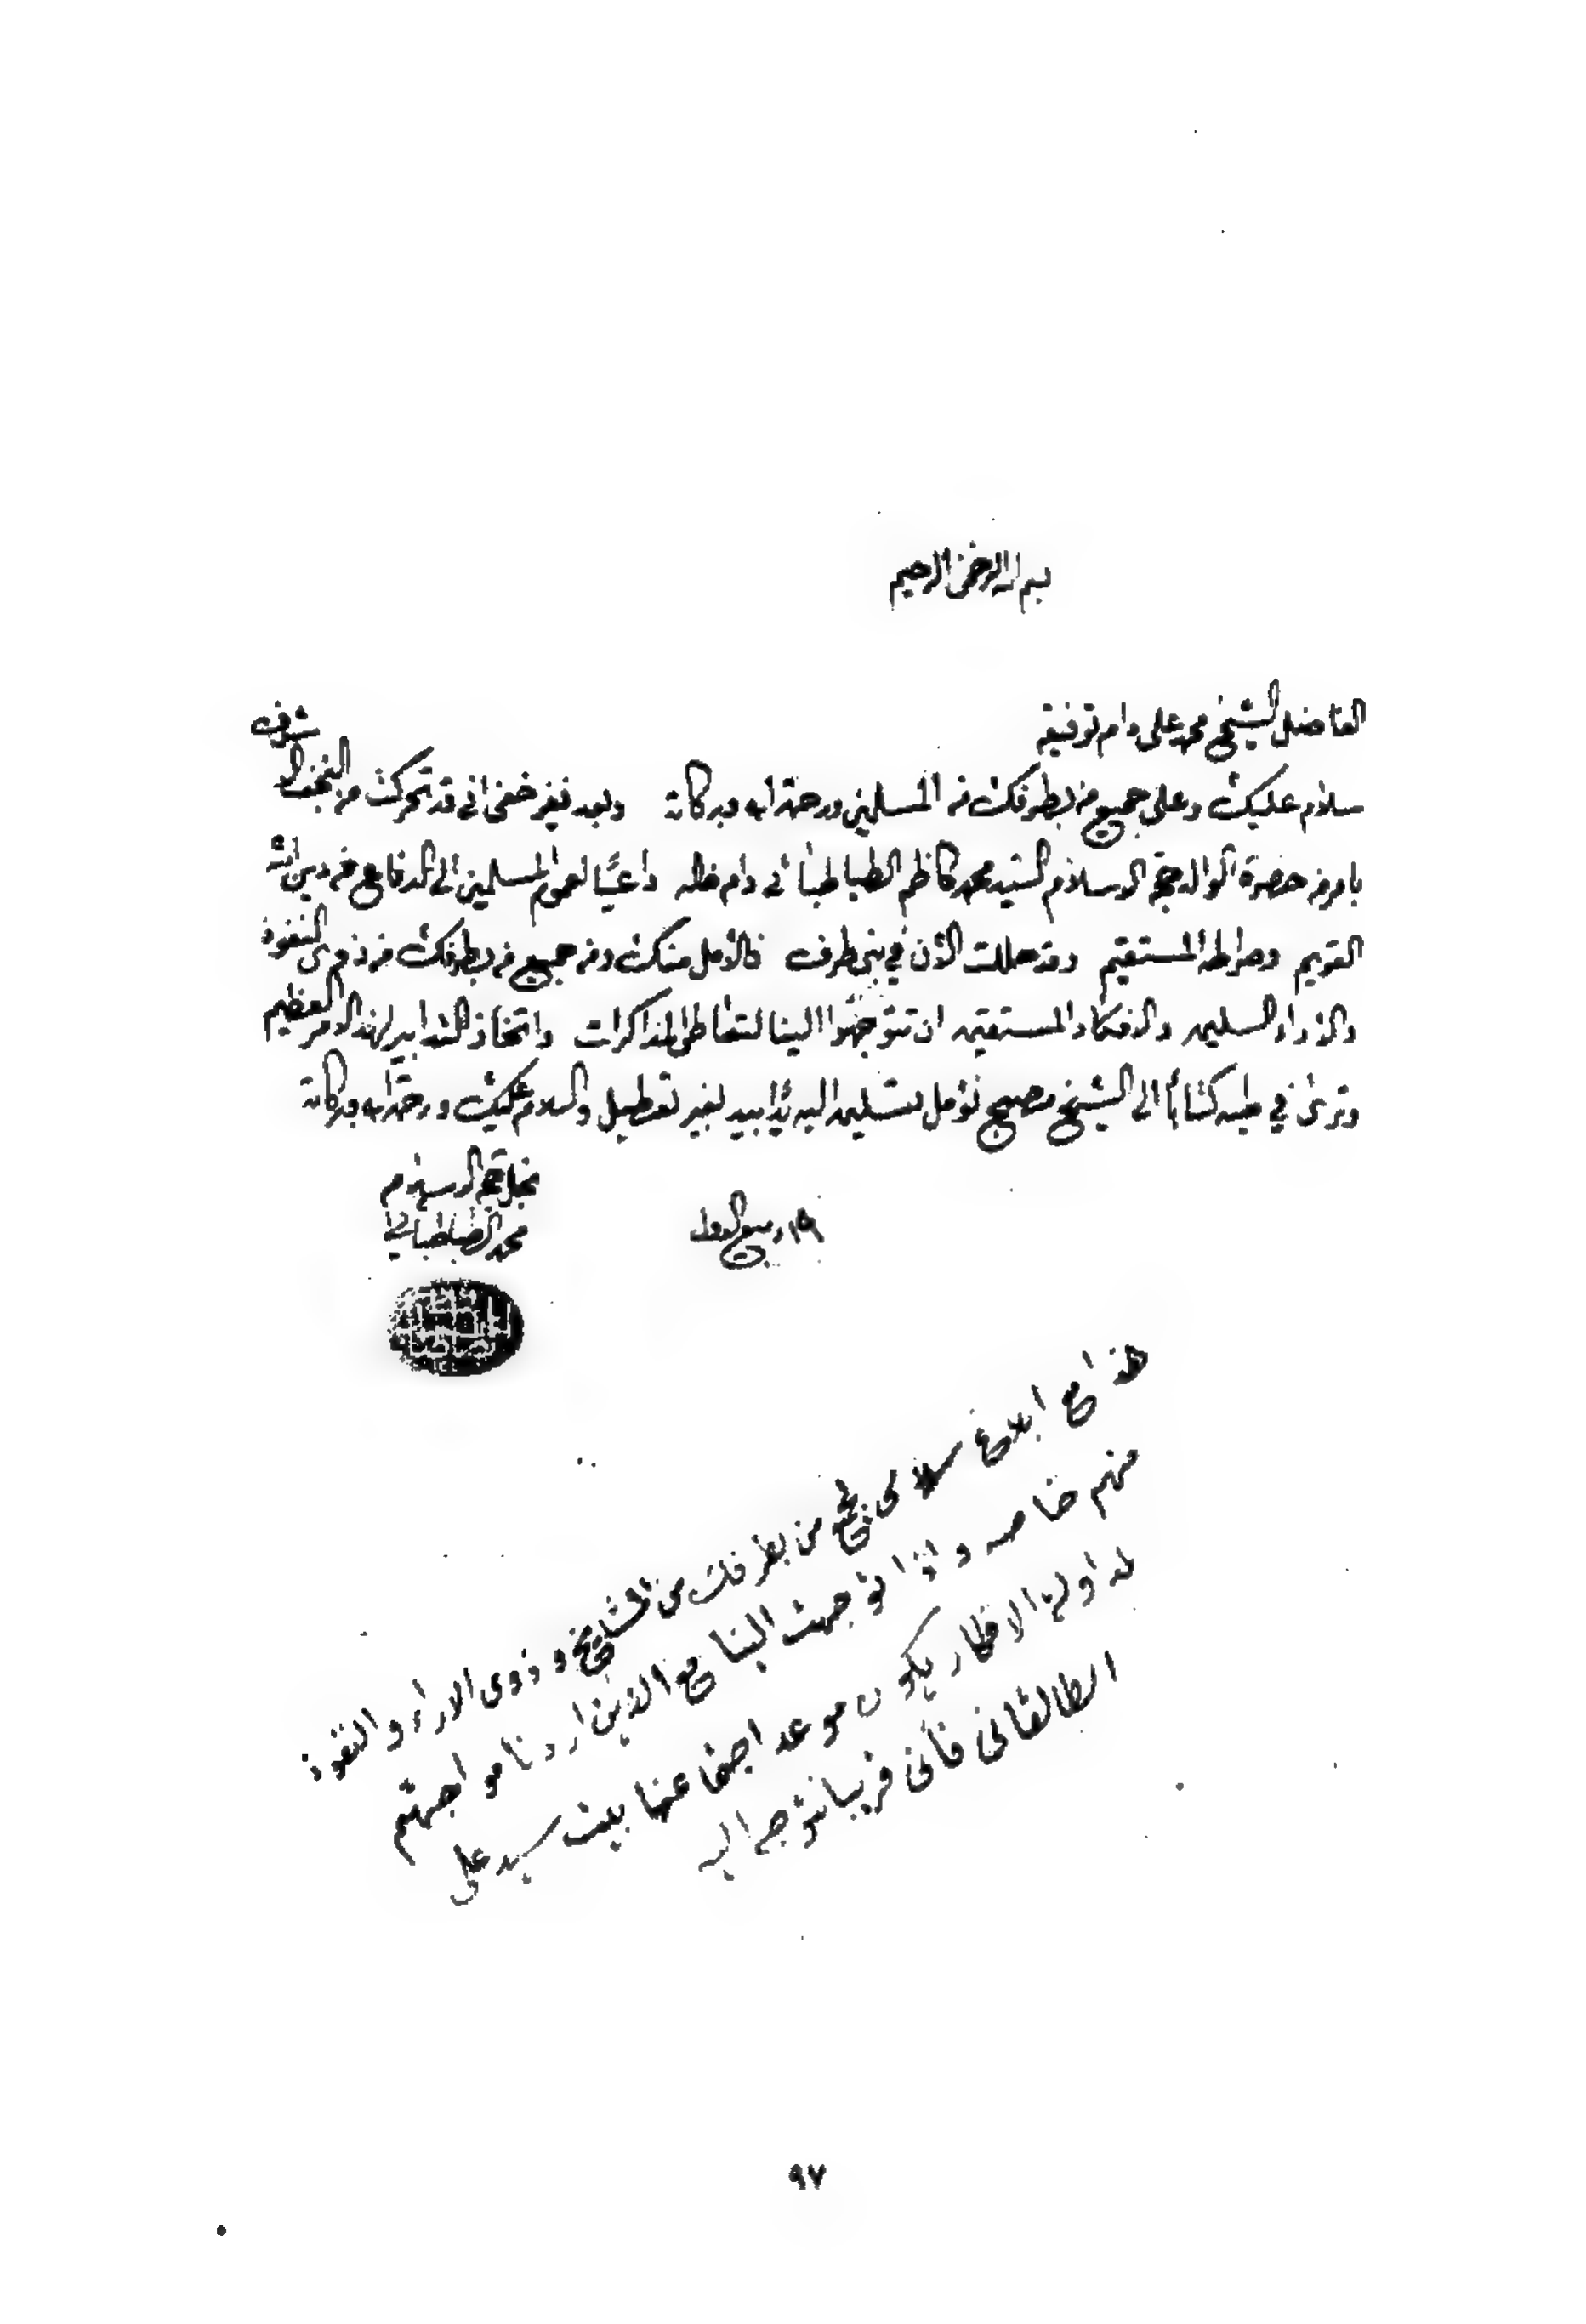 بسم الله الرحمن الرحيم
الفاضل الشيخ محمد علي دام توفيقه
سلام عليك وعلى جميع من بطرفك من المسلمين ورحمة الله وبركاته وبعد فغير خفي اني قد تحركت من النجف الاشرف
بامر من حضرة الوالد حجة الاسلام السيد محمد كاظم الطباطبائي دام ظله داعيًا لعموم المسلمين الى الدفاع عن دين الله
القويم وصراطه المستقيم وقد حللت الآن في بني طرف فالأمل منك ومن جميع من بطرفك من ذوي النفوذ
والآراء السليمه والافكار المستقيمه ان تتوجهوا الينا لتعاطي المذاكرات واتخاذ التدابير لهذا الامر العظيم
وترى في طيه كتاباً الى الشيخ مصبح نؤمل تسليمه اليه يدًا بيد بغير تعطيل والسلام عليك ورحمة الله وبركاته
نجل حجة الاسلام
محمد الطباطبائي
١٩ ربيع الاول
هذا مع ابلاغ سلامي لجميع من بطرفك من المشايخ و ذوى الاراء و النفوذ
منهم خاصه و اذا توجهت الينا مع الذين اردنا مواجهتهم
لمداولة الافكار يكون موعد اجتماعنا بيت سيد على
الطالقانى فأنى قريبا نتوجه اليه
٩٧